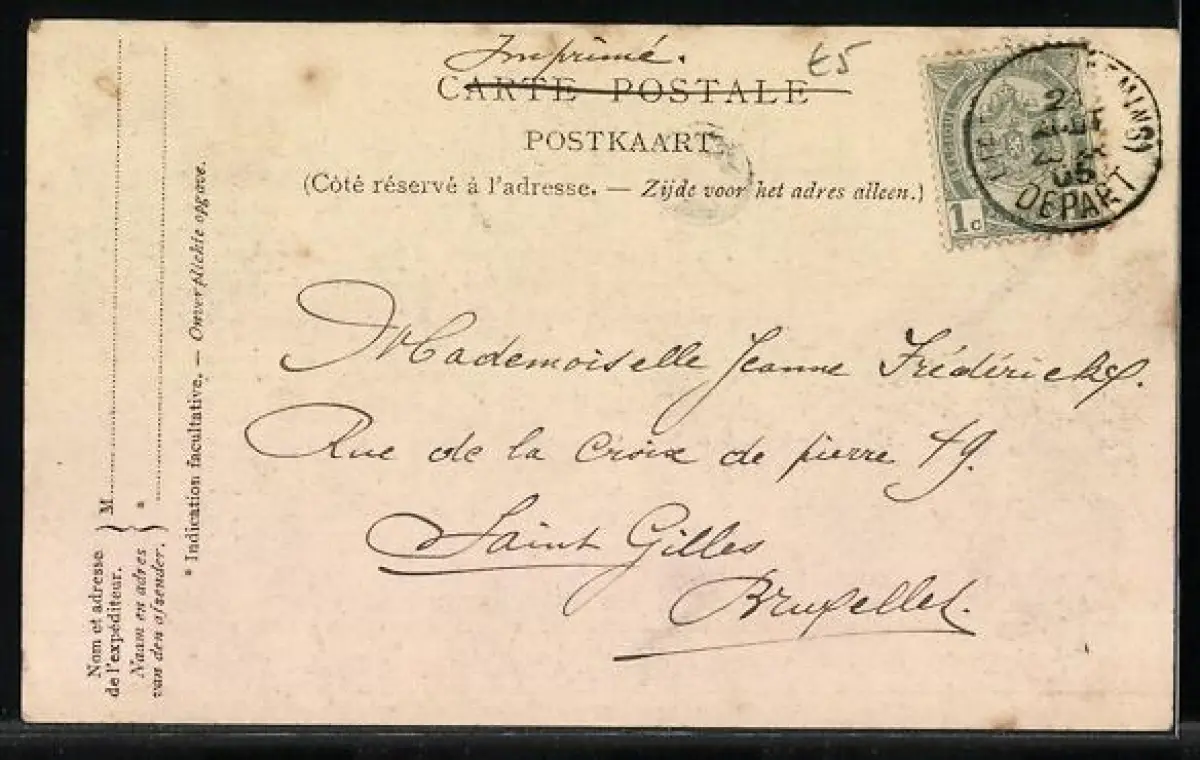 Imprimé.
t5
CARTE POSTALE
POSTKAART
(Côté réservé à l'adresse. — Zijde voor het adres alleen.)
1c
DEPART
05
Mademoiselle Jeanne Frédérickx.
Rue de la Croix de pierre 49.
Saint Gilles
Bruxelles.
* Indication facultative. — Onverplichte opgave.
M
*
Nom et adresse
de l'expéditeur.
Naam en adres
van den afzender.